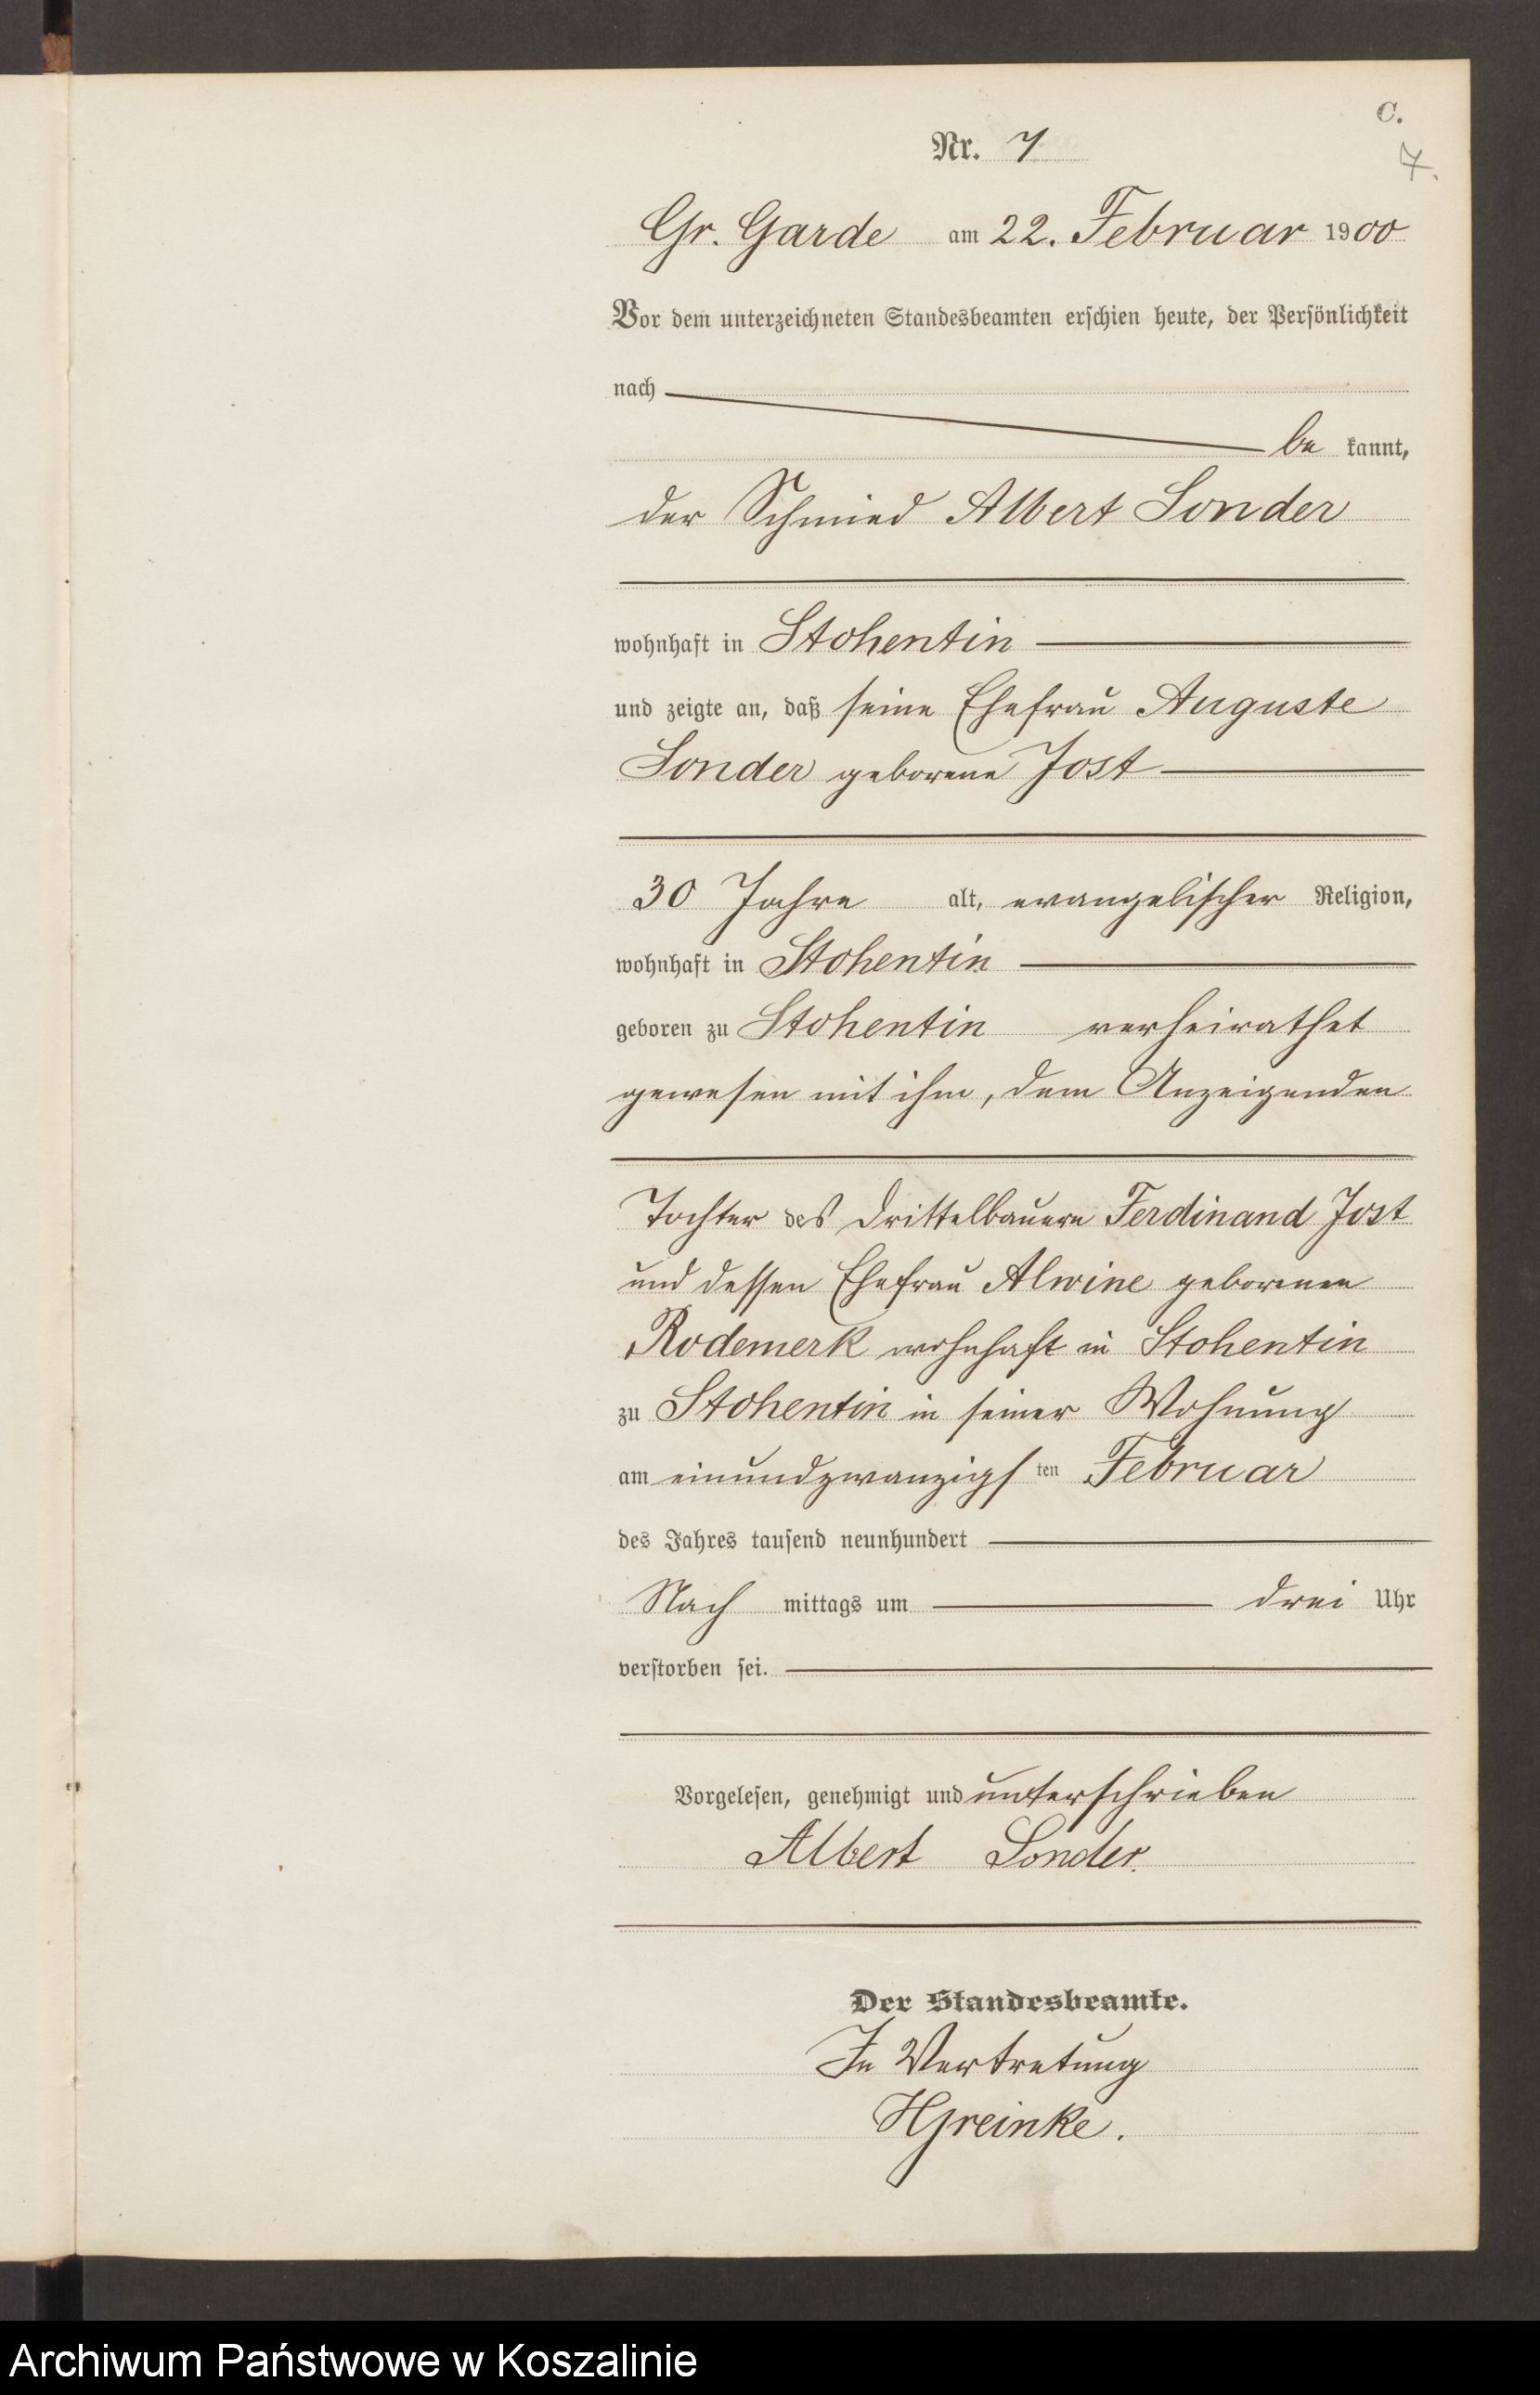 C.
Nr. 7
7.
Gr. Garde am 22. Februar 1900
Vor dem unterzeichneten Standesbeamten erschien heute, der Persönlichkeit
nach
be kannt,
der Schmied Albert Sonder
wohnhaft in Stohentin
und zeigte an, daß seine Ehefrau Auguste
Sonder geborene Jost
30 Jahre alt, evangelischer Religion,
wohnhaft in Stohentin
geboren zu Stohentin verheirathet
gewesen mit ihm, dem Anzeigenden
Tochter des Drittelbauern Ferdinand Jost
und dessen Ehefrau Alwine geborenen
Rodemerk wohnhaft in Stohentin
zu Stohentin in seiner Wohnung
am einundzwanzigsten Februar
des Jahres tausend neunhundert
Nach mittags um drei Uhr
verstorben sei.
Vorgelesen, genehmigt und unterschrieben
Albert Sonder.
Der Standesbeamte.
In Vertretung
Archiwum Państwowe w Koszalinie